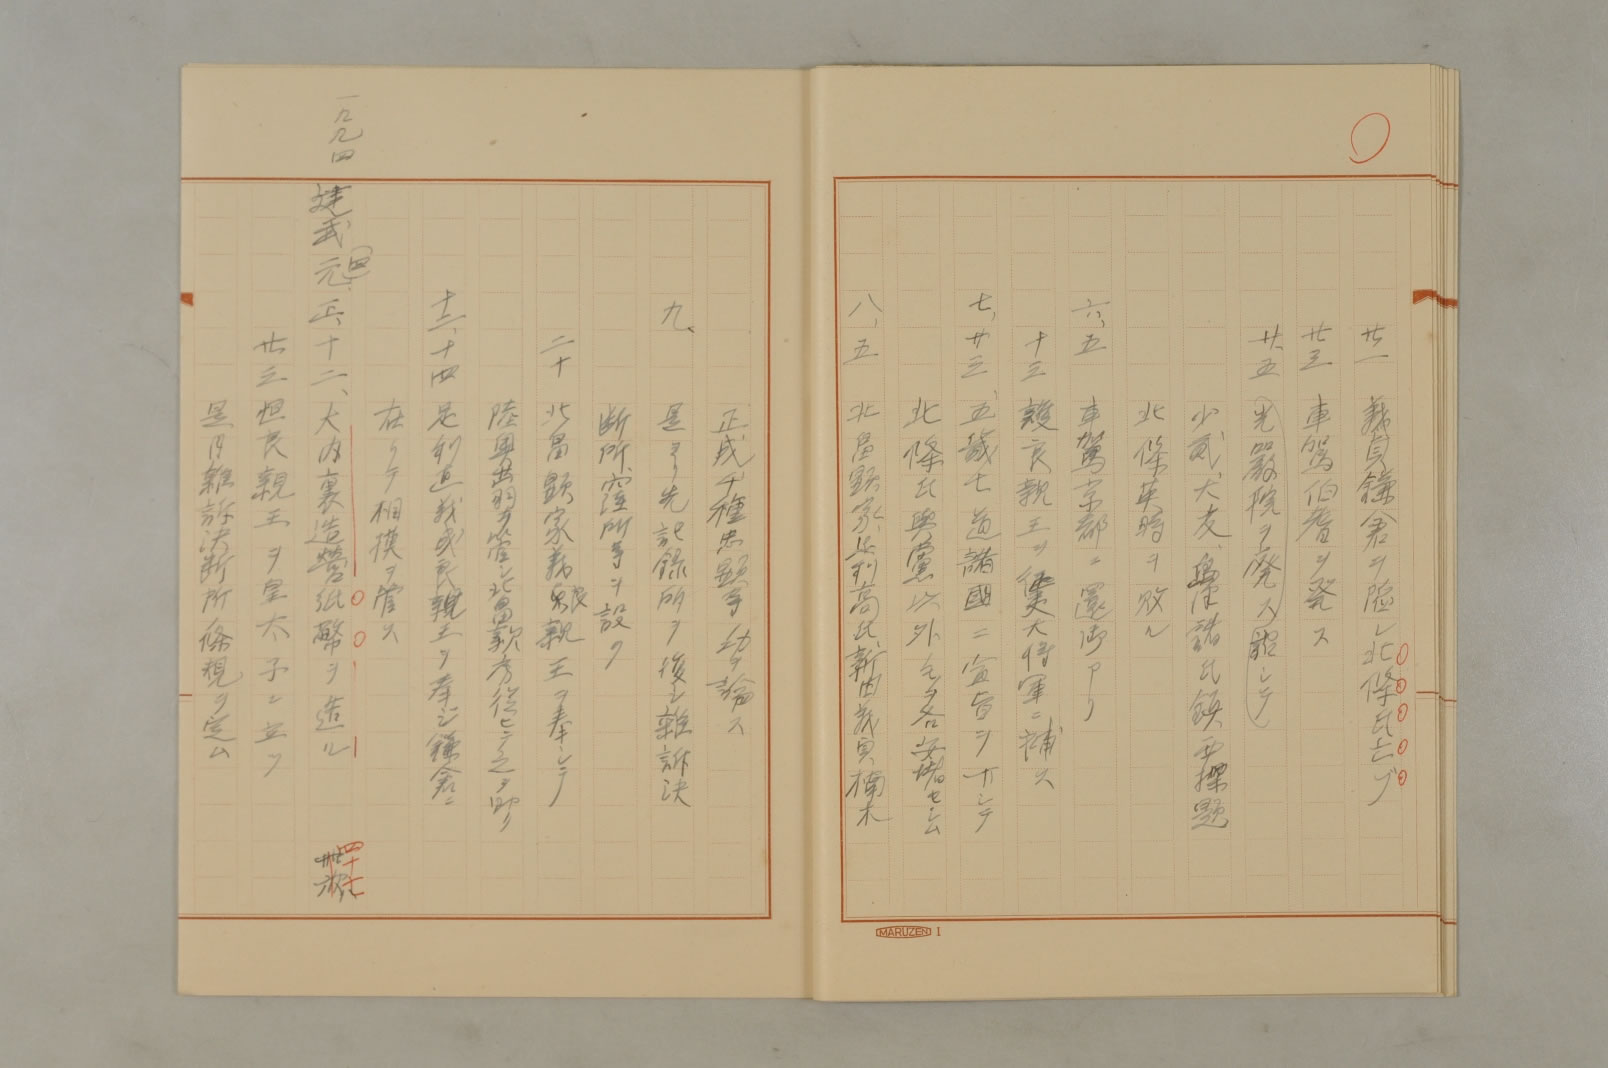 廿一 義貞鎌倉ヲ陥レ北條氏亡ブ
廿三 車駕伯耆ヲ発ス
廿五 光嚴院ヲ廃ス
少貳、大友、島津諸氏鎮西探題
北條英時ヲ敗ル
六、五 車駕京都ニ還御アリ
十三 護良親王ヲ征夷大将軍ニ補ス
七、廿三 五畿七道諸國ニ宣旨ヲ下シテ
北條氏與黨以外ノ者各安堵セシム
八、五 北畠顕家、足利高氏、新田義貞楠木
MARUZEN 1
正成、千種忠顕等ノ功ヲ論ス
九、 是ヨリ先記録所ヲ復シ雑訴決
断所、窪所等ヲ設ク
二十 北畠顕家義良親王ヲ奉シテ
陸奥出羽ヲ管シ北畠親房従ヒテ之ヲ助ク
十二、十四 足利直義成良親王ヲ奉シ鎌倉ニ
在リテ相模ヲ管ス
一九九四 建武元、正、十二、大内裏造營紙幣ヲ造ル
四十七
廿三 恒良親王ヲ皇太子ニ立ツ
是月雑訴決断所條規ヲ定ム